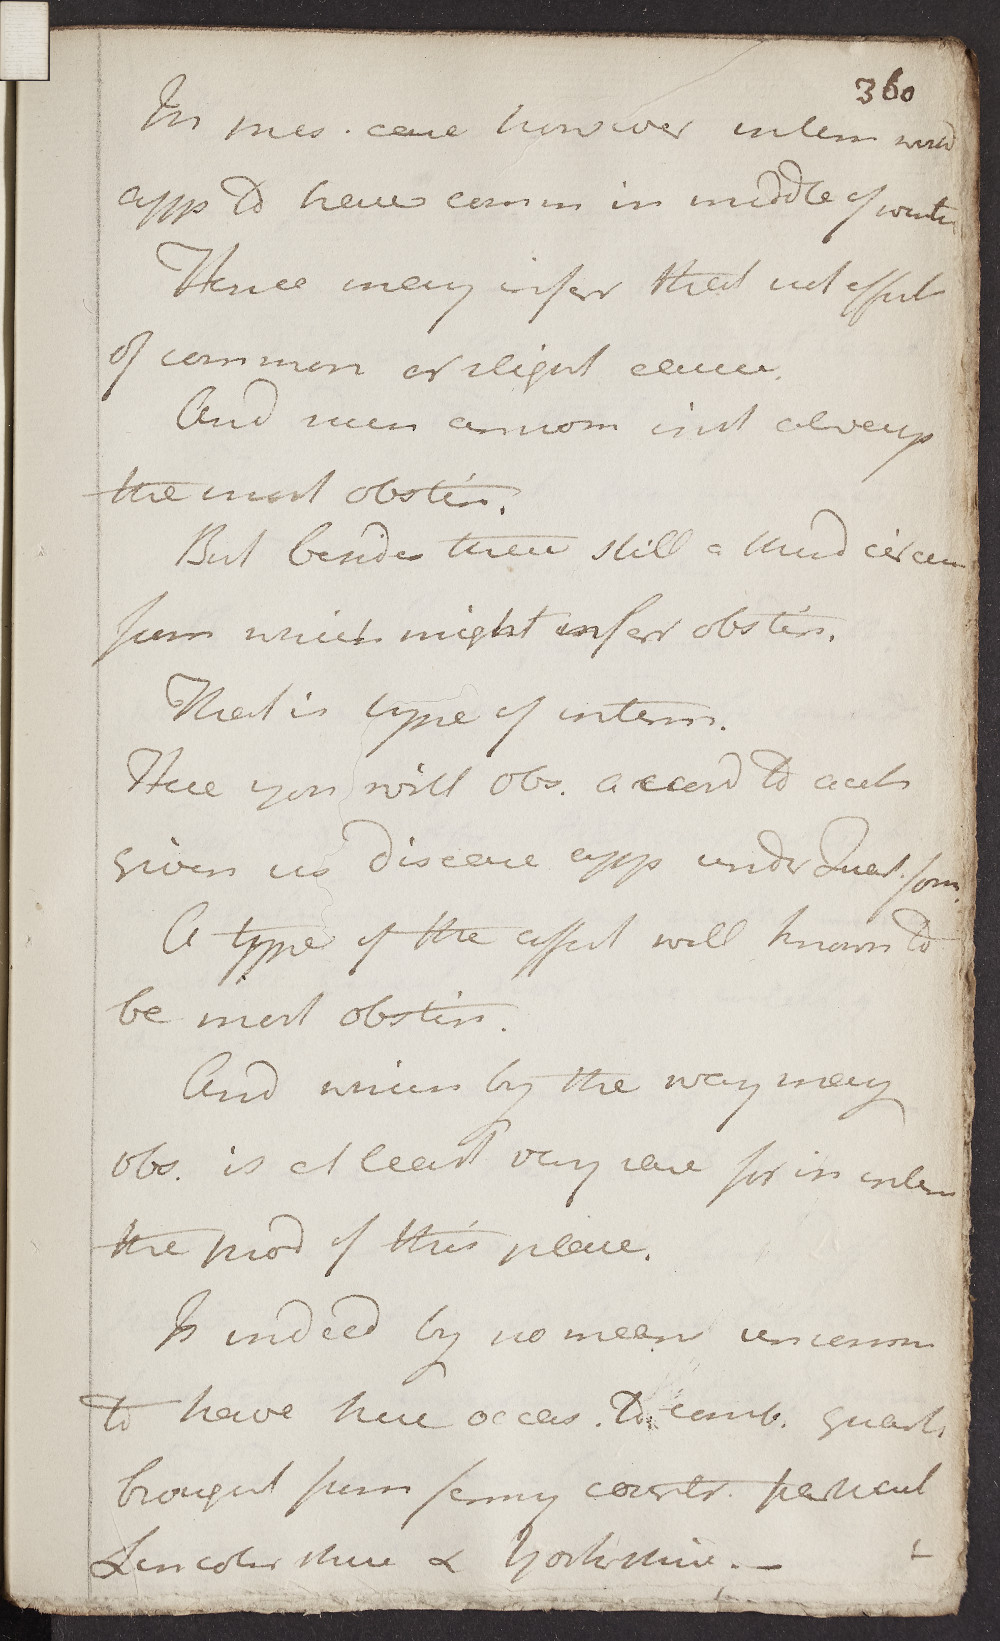 360
In pres. case however intern wou'd
app to have comm in middle of winter
Hence may infer that not effect
of common or slight cause.
And such ammom inst always
the most obstin.
But besides these still a third circum
from which might infer obstin.
That is type of interm.
Here you will obs. accord to acct
given us disease app under Quart. form.
A type of the affect well known to
be most obstin.
And which by the way may
obs. is at least very rare for in interm
the prod of this place.
Is indeed by no means uncomm
to have here occas. to comb. quart.
brought from fenny countr. particul
Lincolnshire & Yorkshire. —